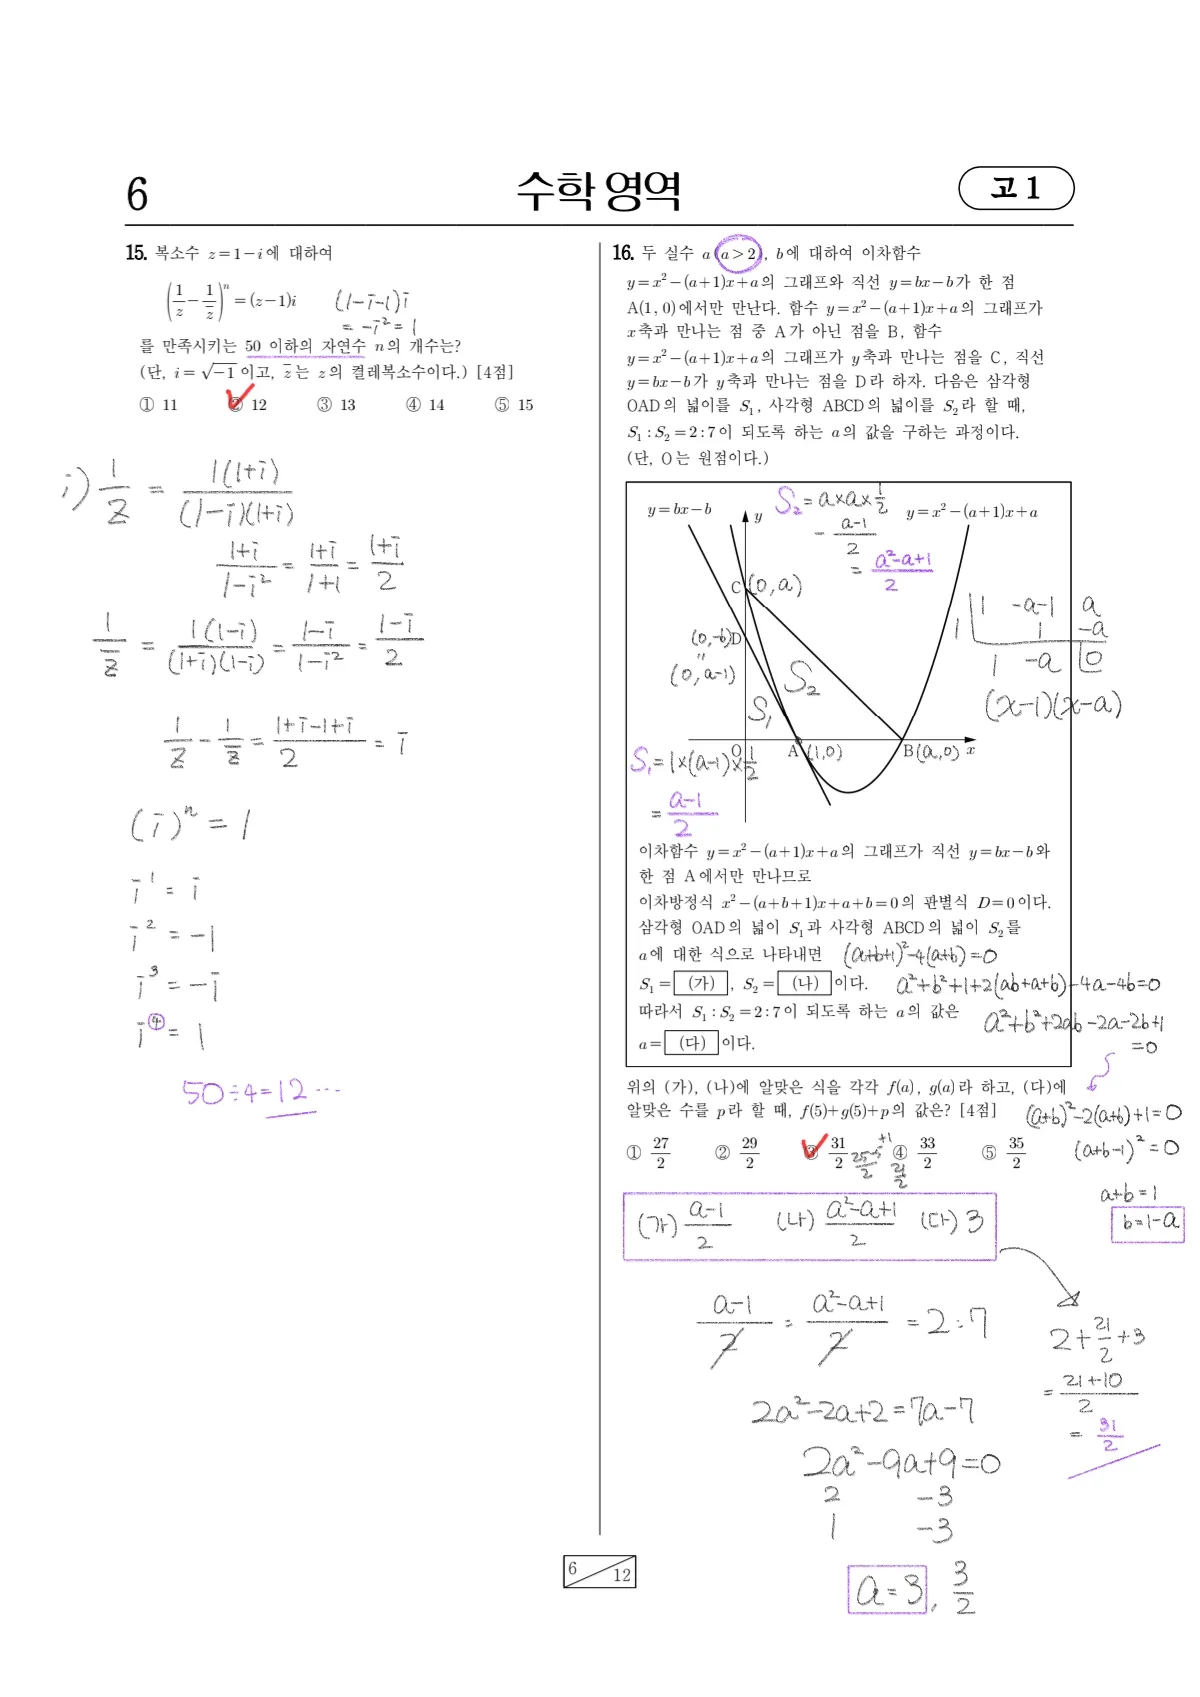 6
수학 영역
고 1
15. 복소수 z=1-i에 대하여
(1/z - 1/z̄)ⁿ = (z-1)i
(1-i-1)i
= -i² = 1
를 만족시키는 50 이하의 자연수 n의 개수는?
(단, i=√-1 이고, z̄는 z의 켤레복소수이다.) [4점]
① 11 ② 12 ③ 13 ④ 14 ⑤ 15
i) 1/z = 1(1+i)/(1-i)(1+i)
1+i/1-i² = 1+i/1+1 = 1+i/2
1/z̄ = 1(1-i)/(1+i)(1-i) = 1-i/1-i² = 1-i/2
1/z - 1/z̄ = 1+i-1+i/2 = i
(i)ⁿ = 1
i¹ = i
i² = -1
i³ = -i
i⁴ = 1
50÷4=12 ···
16. 두 실수 a(a>2), b에 대하여 이차함수
y=x²-(a+1)x+a의 그래프와 직선 y=bx-b가 한 점
A(1, 0)에서만 만난다. 함수 y=x²-(a+1)x+a의 그래프가
x축과 만나는 점 중 A가 아닌 점을 B, 함수
y=x²-(a+1)x+a의 그래프가 y축과 만나는 점을 C, 직선
y=bx-b가 y축과 만나는 점을 D라 하자. 다음은 삼각형
OAD의 넓이를 S₁, 사각형 ABCD의 넓이를 S₂라 할 때,
S₁:S₂=2:7이 되도록 하는 a의 값을 구하는 과정이다.
(단, O는 원점이다.)
S₂ = a×a×1/2
y=bx-b y y=x²-(a+1)x+a
- a-1/2
= a²-a+1/2
C(0, a)
1 | 1 -a-1 a
1 -a
1 -a 0
(x-1)(x-a)
(0, -b) D
"
(0, a-1)
S₂
S₁
O A (1,0) B (a,0) x
S₁ = 1×(a-1)×1/2
= a-1/2
이차함수 y=x²-(a+1)x+a의 그래프가 직선 y=bx-b와
한 점 A에서만 만나므로
이차방정식 x²-(a+b+1)x+a+b=0의 판별식 D=0이다.
삼각형 OAD의 넓이 S₁과 사각형 ABCD의 넓이 S₂를
a에 대한 식으로 나타내면 (a+b+1)²-4(a+b)=0
S₁= (가) , S₂= (나) 이다. a²+b²+1+2(ab+a+b)-4a-4b=0
따라서 S₁:S₂=2:7이 되도록 하는 a의 값은 a²+b²+2ab-2a-2b+1
=0
a= (다) 이다.
위의 (가), (나)에 알맞은 식을 각각 f(a), g(a)라 하고, (다)에
알맞은 수를 p라 할 때, f(5)+g(5)+p의 값은? [4점] (a+b)²-2(a+b)+1=0
① 27/2 ② 29/2 ③ 31/2 ④ 33/2 ⑤ 35/2
25-5+1/2 21/2
(a+b-1)²=0
a+b=1
b=1-a
(가) a-1/2 (나) a²-a+1/2 (다) 3
a-1/2 : a²-a+1/2 = 2:7
2a²-2a+2=7a-7
2a²-9a+9=0
2 -3
1 -3
a=3, 3/2
2+21/2+3
= 21+10/2
= 31/2
6
12